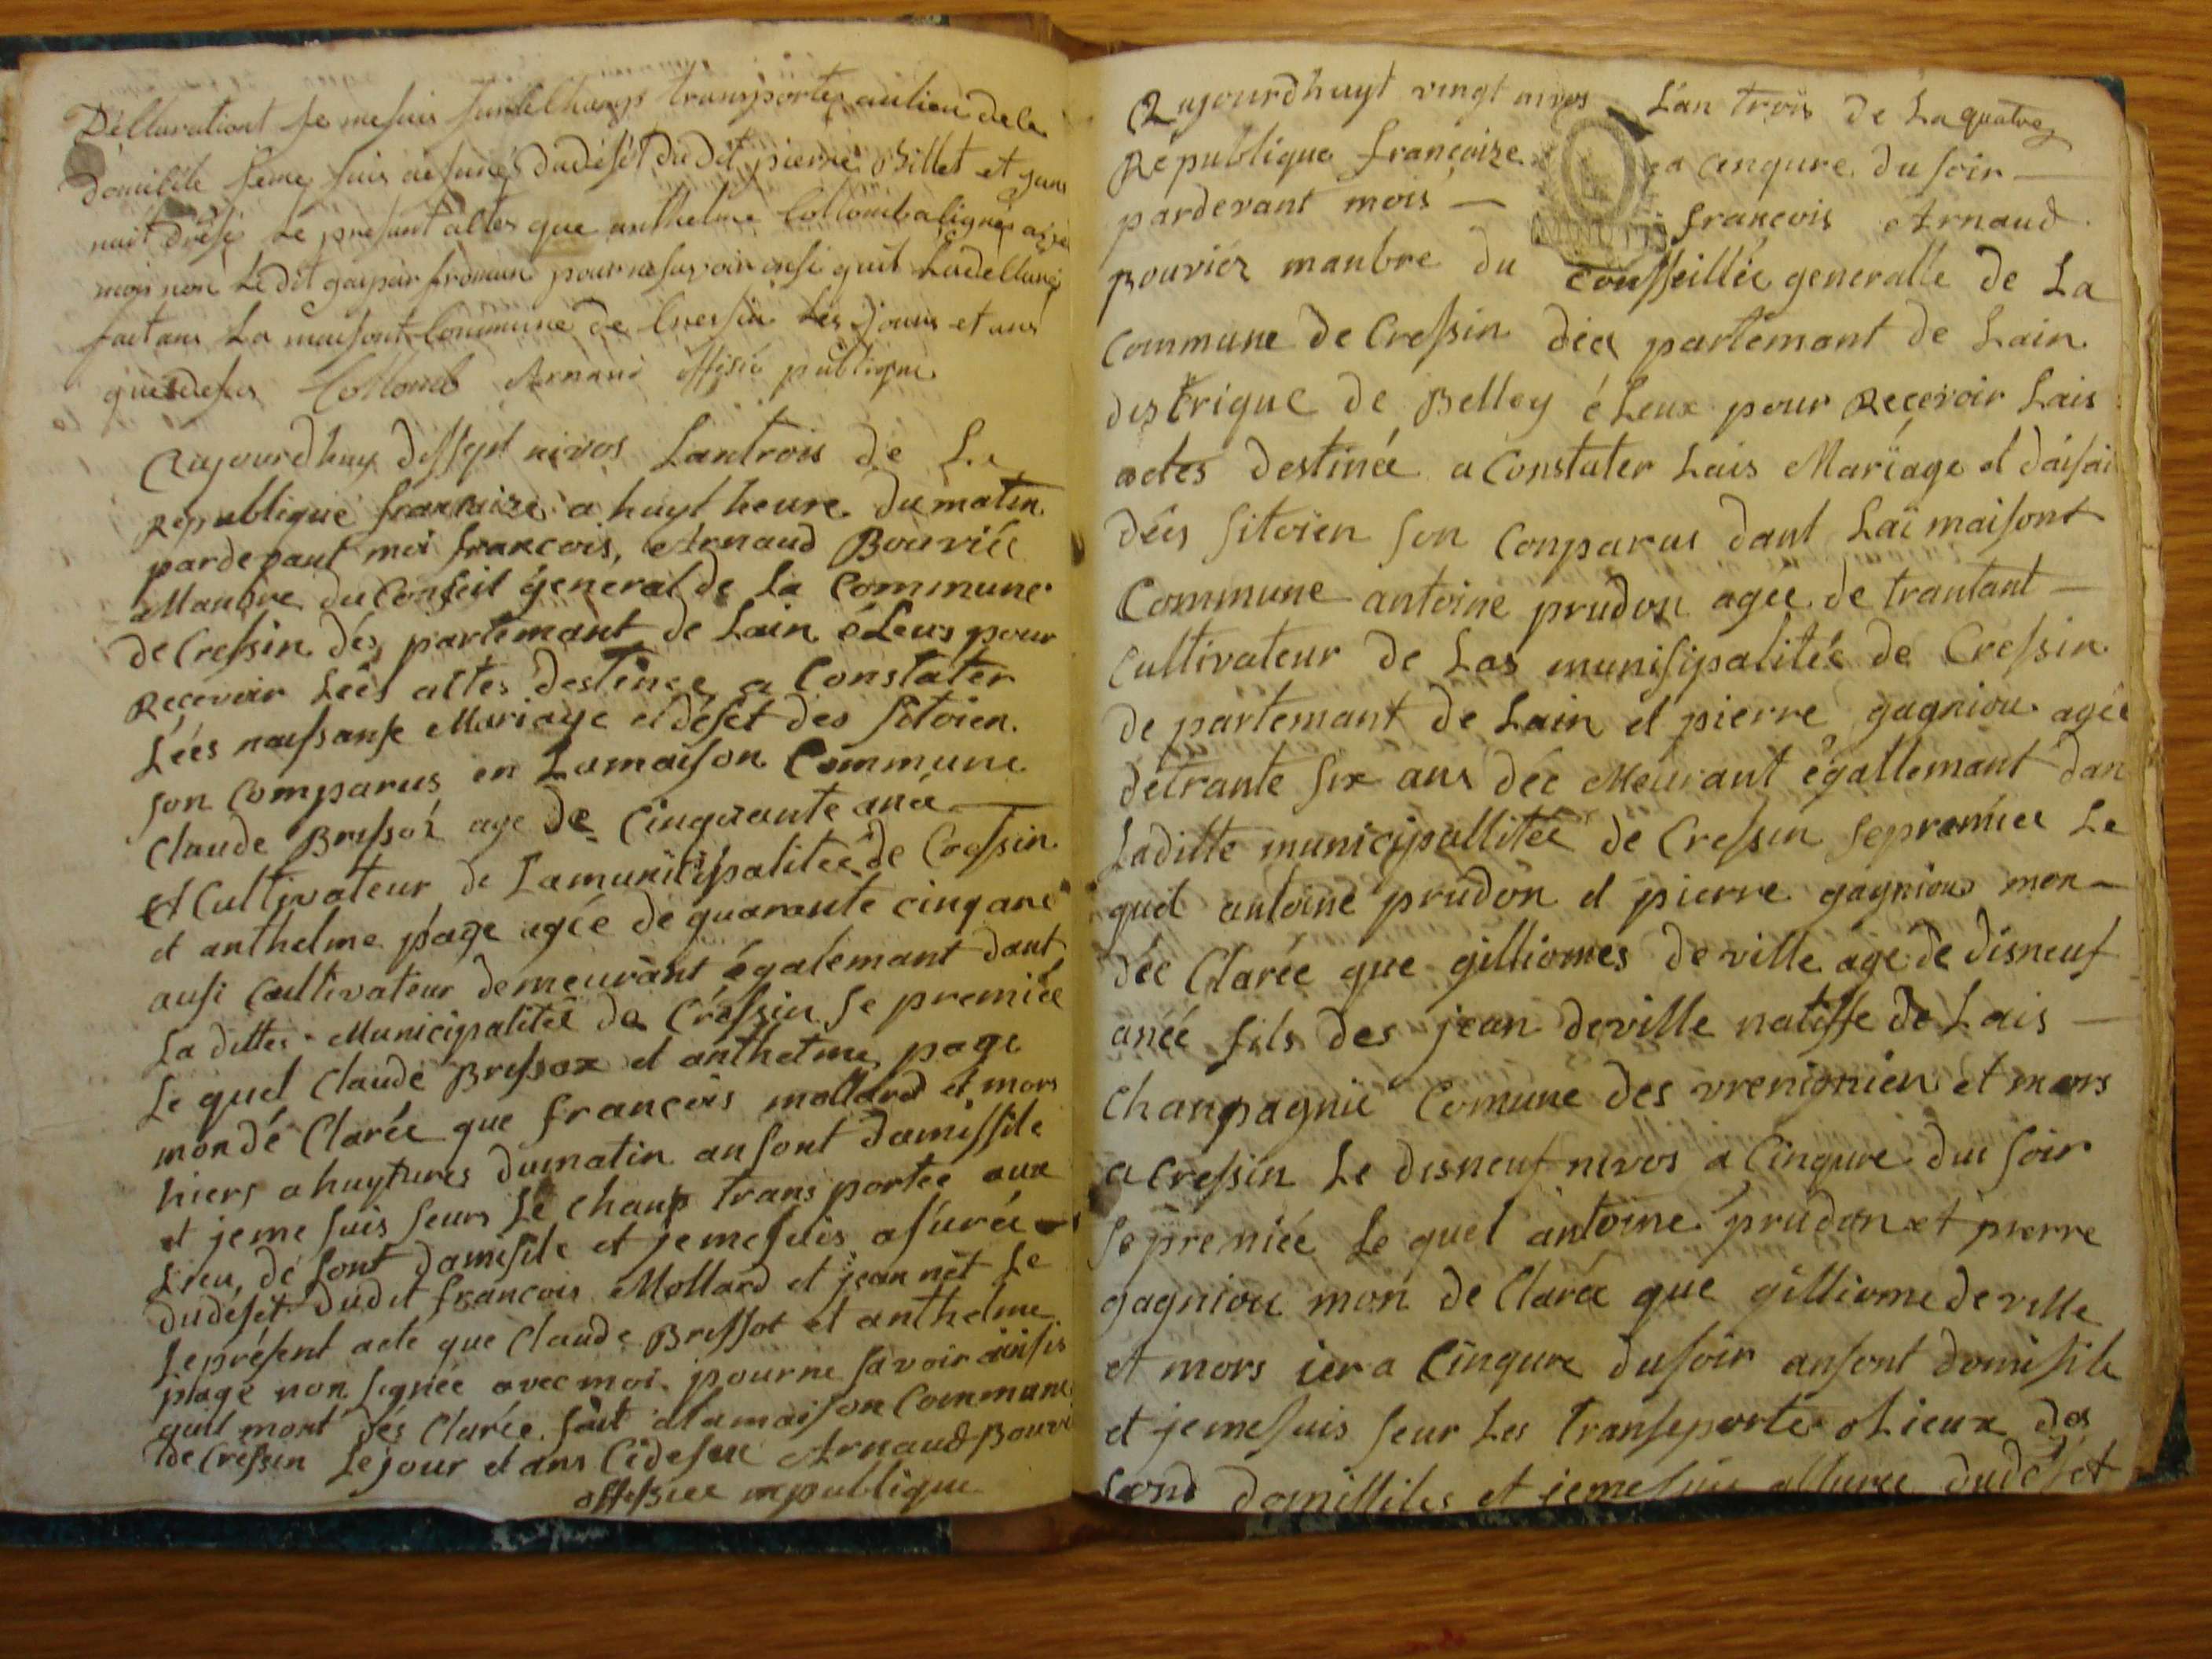 Déllarationt je mesuis surlechamps transporter aulieu dele
domicile jeme suis asuré dudését dudit pierre Billet et jenn
nait dresé le present altes que anthelme Collomb a signés avec
moi non Ledit gaspar fromein pour ne savoir insi quil La dellaré
fait ans La maisont Commune de Cressin Les jours et ans
que desus Collomb Arnaud offisié publique
Aujourdhuy dissept nivos Lantrois de La
Republique francaize a huyt heure du matin
pardevant moi francois, Arnaud Bouviée
Manbre du Conseil general de La Commune
de Cressin dés partemant de Lain éLeus pour
Recevoir Léés altes destinée a Constater
Léés naissanse Mariage et déset des Sitoien
son Comparus en Lamaison Commune
Claude Brissot age de Cinquante anée
et Cultivateur de Lamunicipalitée de Cressin
et anthelme page agée de quarante cinq ans
ausi Cultivateur demeurant égalemant dant
La dittes Municipalitée de Cressin se premiée
Le quel Claude Brissot et anthelme page
mondé Clarée que françois mollard et mors
hiers a huyt ures dumatin ansont damissile
et jeme suis seurs Le champ trans portée aux
Lieu, de sont damisile et jemesuis asurée
dudéset dudit francois Mollard et jean nét Le
Leprésent acte que Claude Brissot et anthelme
page non signée avec moi pourne savoir ainsis
quil mont dés Clarée fait alamaison Commune
de Cressin Lejour et ans Cidesue Arnaud Bouvi
offissiee republique
Aujourdhuyt vingt nivos L'an trois de La quatre
Republique françoize a cinqure du soir
pardevant mois françois Arnaud
Bouviéz manbre du Cousseillée generalle de La
Commune de Cressin dée partémant de Lain
distrique de Belley éLeux pour Recevoir Lais
actes destinée a Constater Lais Mariage et daisai
dées sitoien son Conparus dant Lai maisont
Commune antoine prudon agée de trantant
Cultivateur de Las munisipalitée de Cressin
de partemant de Lain et pierre gagniou agée
détrante six ans dée Meurant égallemant dan
Laditte municipallitée de Cressin sepremiee Le
quel antoine prudon et pierre gagniou mon
dée Clarée que gilliomes de ville age de disneuf
anée fils des jean deville natiffe de Lais
Chanpagnie Comune des vrenignien et mors
a Cressin Le disneuf nivos a Cinqure du soir
Sepremiée Le quel antoine prudon et pierre
gagniou mon de Clarée que gilliome de ville
et mors iera Cinqure dusoir ansont domisile
et jemesuis seur Les transeporte o Lieux des
sons domissiles et jemesuis assuree dudéset